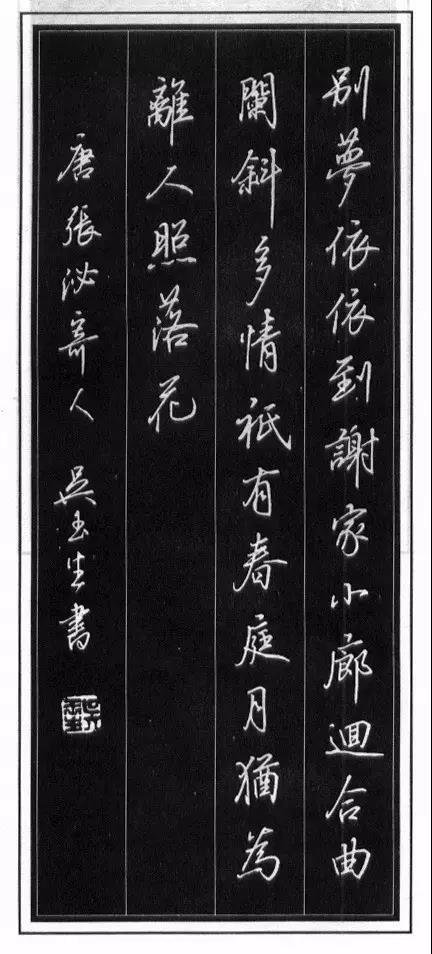 別夢依依到謝家小廊迴合曲
闌斜多情祇有春庭月猶為
離人照落花
唐張泌寄人 吳玉生書